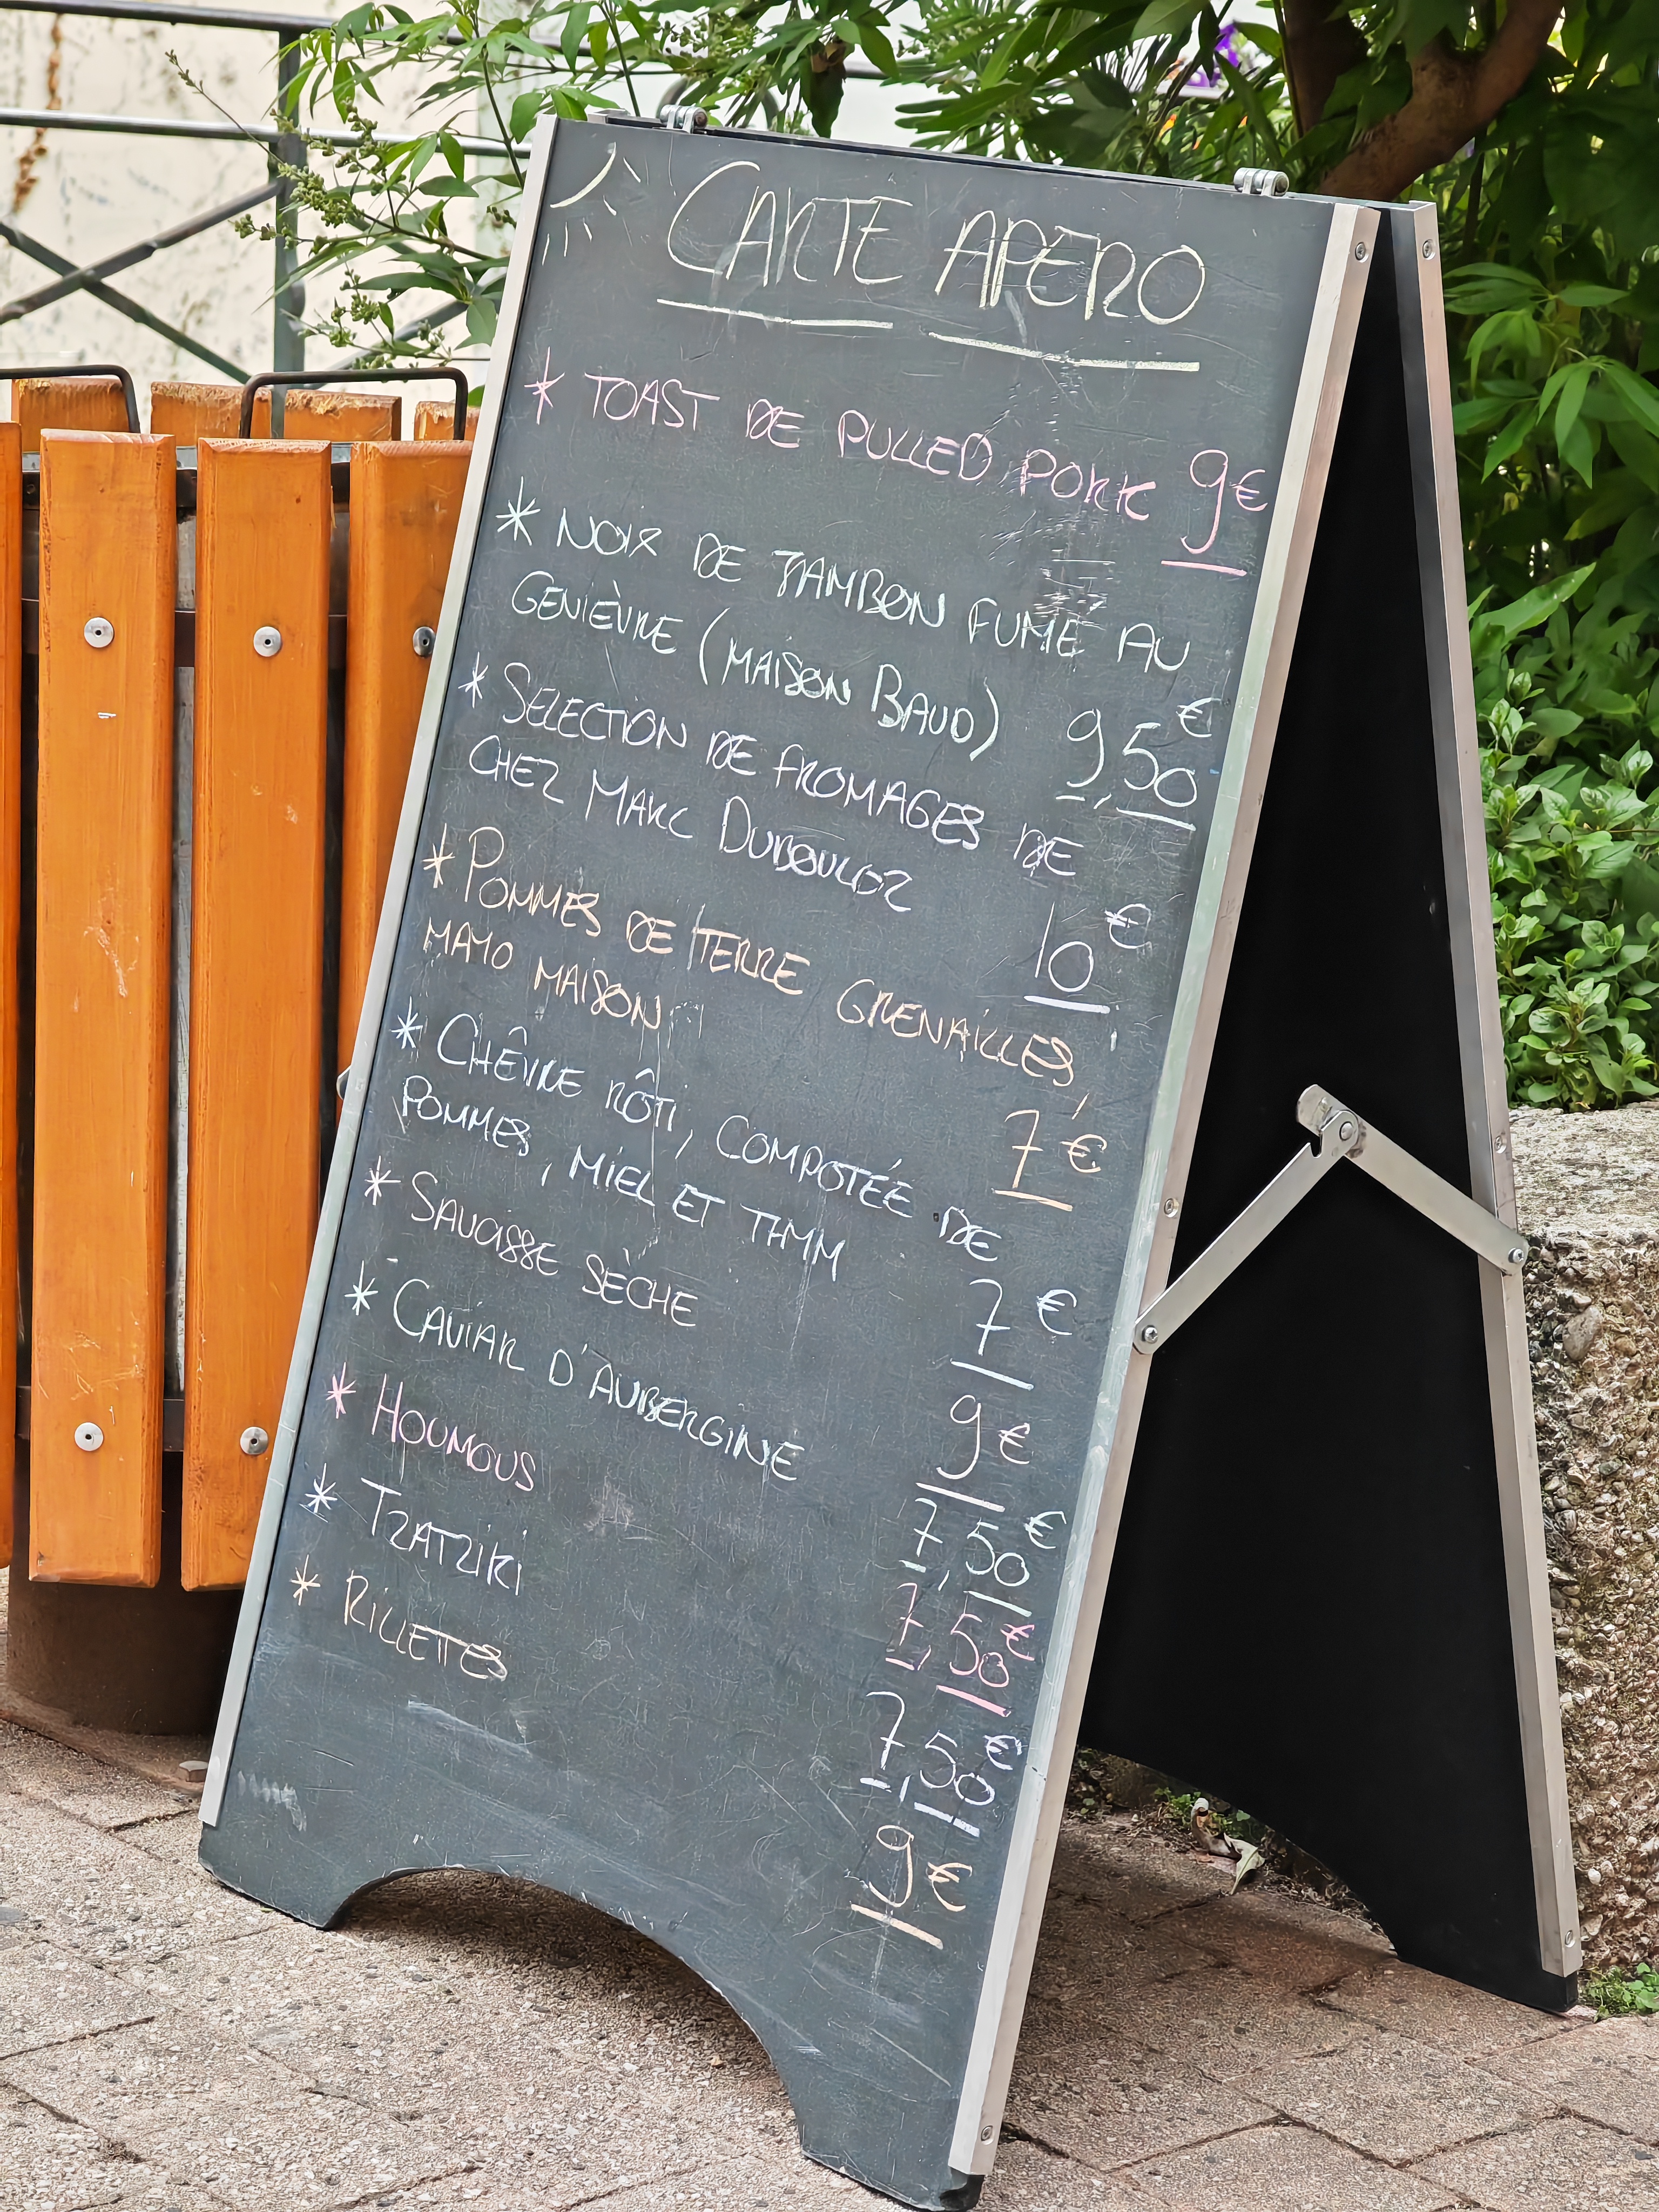 CARTE APERO
* TOAST DE PULLED PORK 9€
* NOIX DE JAMBON FUMÉ AU
GENIÈVRE (MAISON BAUD) 9,50€
* SELECTION DE FROMAGES DE
CHEZ MARC DUBOULOZ 10€
* POMMES DE TERRE GRENAILLES,
MAYO MAISON 7€
* CHÊVRE RÔTI, COMPOTÉE DE
POMMES, MIEL ET THYM 7€
* SAUCISSE SÈCHE 9€
* CAVIAR D'AUBERGINE 7,50€
* HOUMOUS 7,50€
* TZATZIKI 7,50€
* RILLETTES 9€